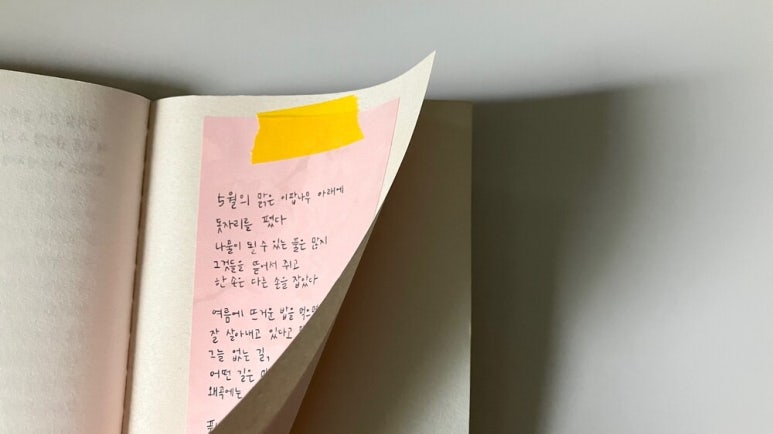 5월의 맑은 이팝나무 아래에
돗자리를 폈다
나물이 될 수 있는 풀은 많지
그것들을 뜯어서 쥐고
한 손은 다른 손을 잡았다
여름에 뜨거운 밥을 먹으면
잘 살아내고 있다고
그늘 없는 길,
어떤 길은
왜곡에는